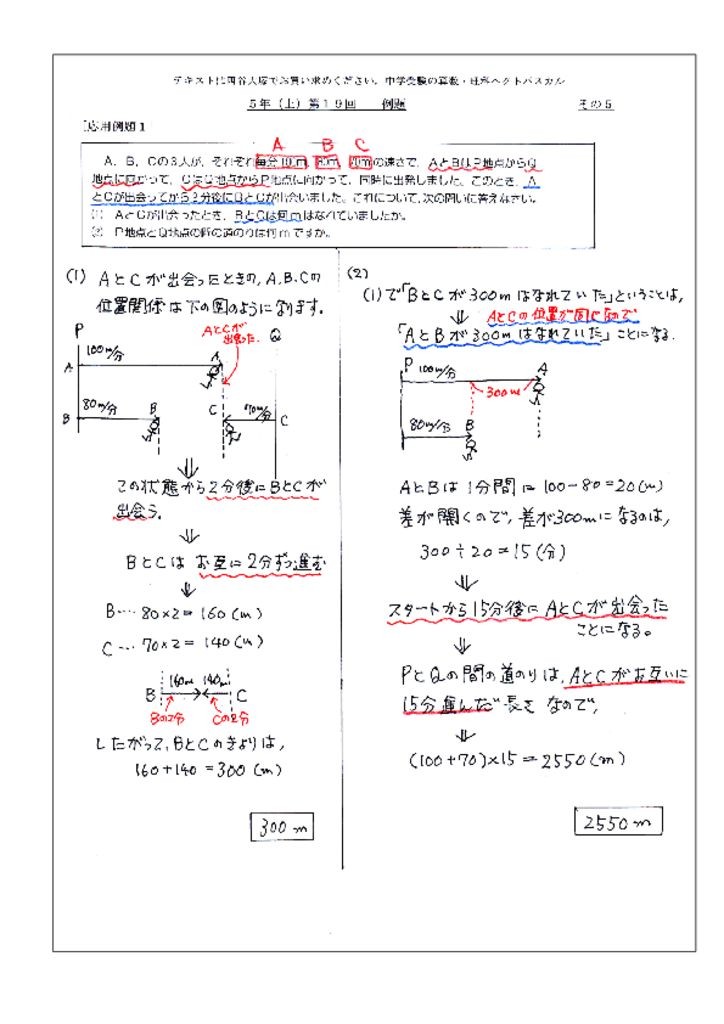 テキストは四谷大塚でお買い求めください。中学受験の算数・理科ヘクトパスカル
5年（上）第１９回　例題　その５
応用例題１
A　B　C
A、B、Cの３人が、それぞれ毎分100m、80m、70mの速さで、AとBはP地点からQ
地点に向かって、CはQ地点からP地点に向かって、同時に出発しました。このとき、A
とCが出会ってから２分後にBとCが出会いました。これについて、次の問いに答えなさい。
(1)　AとCが出会ったとき、BとCは何mはなれていましたか。
(2)　P地点とQ地点の間の道のりは何mですか。
(1) AとCが出会ったときの, A, B, Cの
位置関係は下の図のようになります。
P　AとCが　Q
出会った.
A　100m/分　A
B　80m/分　B　C　70m/分　C
この状態から2分後にBとCが
出会う。
BとCは お互に2分ずつ進む
B… 80×2＝160 (m)
C… 70×2＝140 (m)
160m　140m
B　C
Bの2分　Cの2分
したがって, BとCのきょりは,
160+140 ＝300 (m)
300 m
(2)
(1)で「BとCが300mはなれていた」ということは,
AとCの位置が同じなので
「AとBが300mはなれていた」ことになる.
P　100m/分　A
300m
80m/分　B
AとBは1分間に 100－80＝20 (m)
差が開くので, 差が300mになるのは,
300÷20＝15 (分)
スタートから15分後にAとCが出会った
ことになる。
PとQの間の道のりは, AとCがお互いに
15分進んだ長さなので,
(100+70)×15＝2550 (m)
2550 m